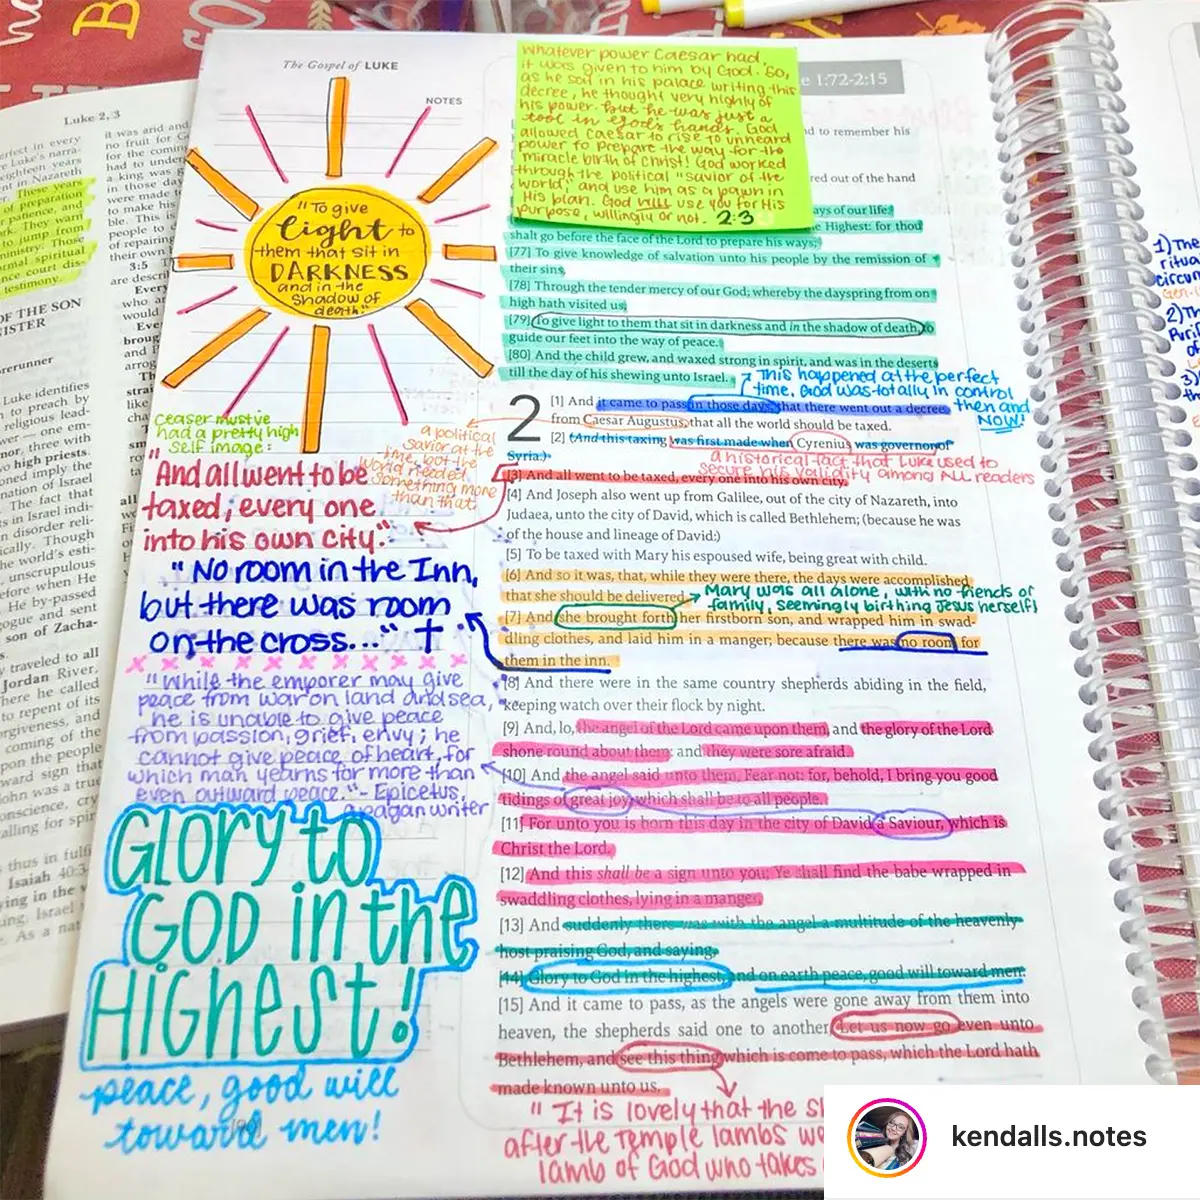 The Gospel of LUKE
NOTES
"To give
light to
them that sit in
DARKNESS
and in the
shadow of
death."
ceaser must've
had a pretty high
self image:
a political
savior at the
time, but the
world needed
something more
than that.
"And all went to be
taxed, every one
into his own city."
"No room in the Inn,
but there was room
on the cross..." †
"While the emporer may give
peace from war on land and sea,
he is unable to give peace
from passion, grief, envy; he
cannot give peace of heart, for
which man yearns for more than
even outward peace." - Epicetus,
a pagan writer
Glory to
GOD in the
Highest!
peace, good will
toward men!
Whatever power Caesar had,
it was given to him by God. So,
as he sat in his palace writing this
decree, he thought very highly of
his power. But he was just a
tool in God's hands. God
allowed Caesar to rise to unheard
power to prepare the way for the
miracle birth of Christ! God worked
through the political "savior of the
world," and use him as a pawn in
His plan. God will use you for His
purpose, willingly or not. 2:3
e 1:72-2:15
d to remember his
red out of the hand
ays of our life:
e Highest: for thou
shalt go before the face of the Lord to prepare his ways;
[77] To give knowledge of salvation unto his people by the remission of
their sins,
[78] Through the tender mercy of our God; whereby the dayspring from on
high hath visited us,
[79] To give light to them that sit in darkness and in the shadow of death, to
guide our feet into the way of peace.
[80] And the child grew, and waxed strong in spirit, and was in the deserts
till the day of his shewing unto Israel.
This happened at the perfect
time, God was totally in control
then and
NOW!
2
[1] And it came to pass in those days, that there went out a decree
from Caesar Augustus, that all the world should be taxed.
[2] (And this taxing was first made when Cyrenius was governor of
Syria.)
a historical fact that Luke used to
secure his validity among ALL readers
[3] And all went to be taxed, every one into his own city.
[4] And Joseph also went up from Galilee, out of the city of Nazareth, into
Judaea, unto the city of David, which is called Bethlehem; (because he was
of the house and lineage of David:)
[5] To be taxed with Mary his espoused wife, being great with child.
[6] And so it was, that, while they were there, the days were accomplished
that she should be delivered.
Mary was all alone, with no friends or
family, seemingly birthing Jesus herself!
[7] And she brought forth her firstborn son, and wrapped him in swad-
dling clothes, and laid him in a manger; because there was no room for
them in the inn.
[8] And there were in the same country shepherds abiding in the field,
keeping watch over their flock by night.
[9] And, lo, the angel of the Lord came upon them, and the glory of the Lord
shone round about them: and they were sore afraid.
[10] And the angel said unto them, Fear not: for, behold, I bring you good
tidings of great joy, which shall be to all people.
[11] For unto you is born this day in the city of David a Saviour, which is
Christ the Lord.
[12] And this shall be a sign unto you; Ye shall find the babe wrapped in
swaddling clothes, lying in a manger.
[13] And suddenly there was with the angel a multitude of the heavenly
host praising God, and saying,
[14] Glory to God in the highest, and on earth peace, good will toward men.
[15] And it came to pass, as the angels were gone away from them into
heaven, the shepherds said one to another, Let us now go even unto
Bethlehem, and see this thing which is come to pass, which the Lord hath
made known unto us.
" It is lovely that the
after the Temple lambs
lamb of God who takes
kendalls.notes
Luke 2, 3
These years
of preparation
OF THE SON
Luke identifies
high priests.
son of Zacha-
Jordan River,
Isaiah 40:3
3:5
1) The
ritua
circum
Gen.
2) Th
Purif
of
3)